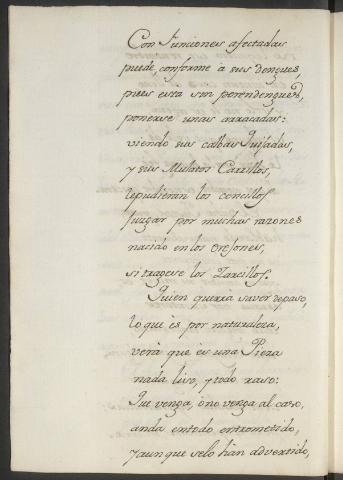 Con funciones afectadas
puede, conforme à sus dengues,
pues está sin perendengues,
ponerse unas arracadas:
viendo sus calbas Quijadas,
y sus Mulatos Carrillos,
le pudieran los concillos
Juzgar por muchas razones
nacido en los Orejones,
si tragese los Zarcillos.
Quien queria saver de paso,
lo que ès por naturaleza,
verá que ès una Pieza
nada liso, y todo raso:
Que venga, ò no venga al caso,
anda en todo entrometido,
y aunque se lo hàn advertido,